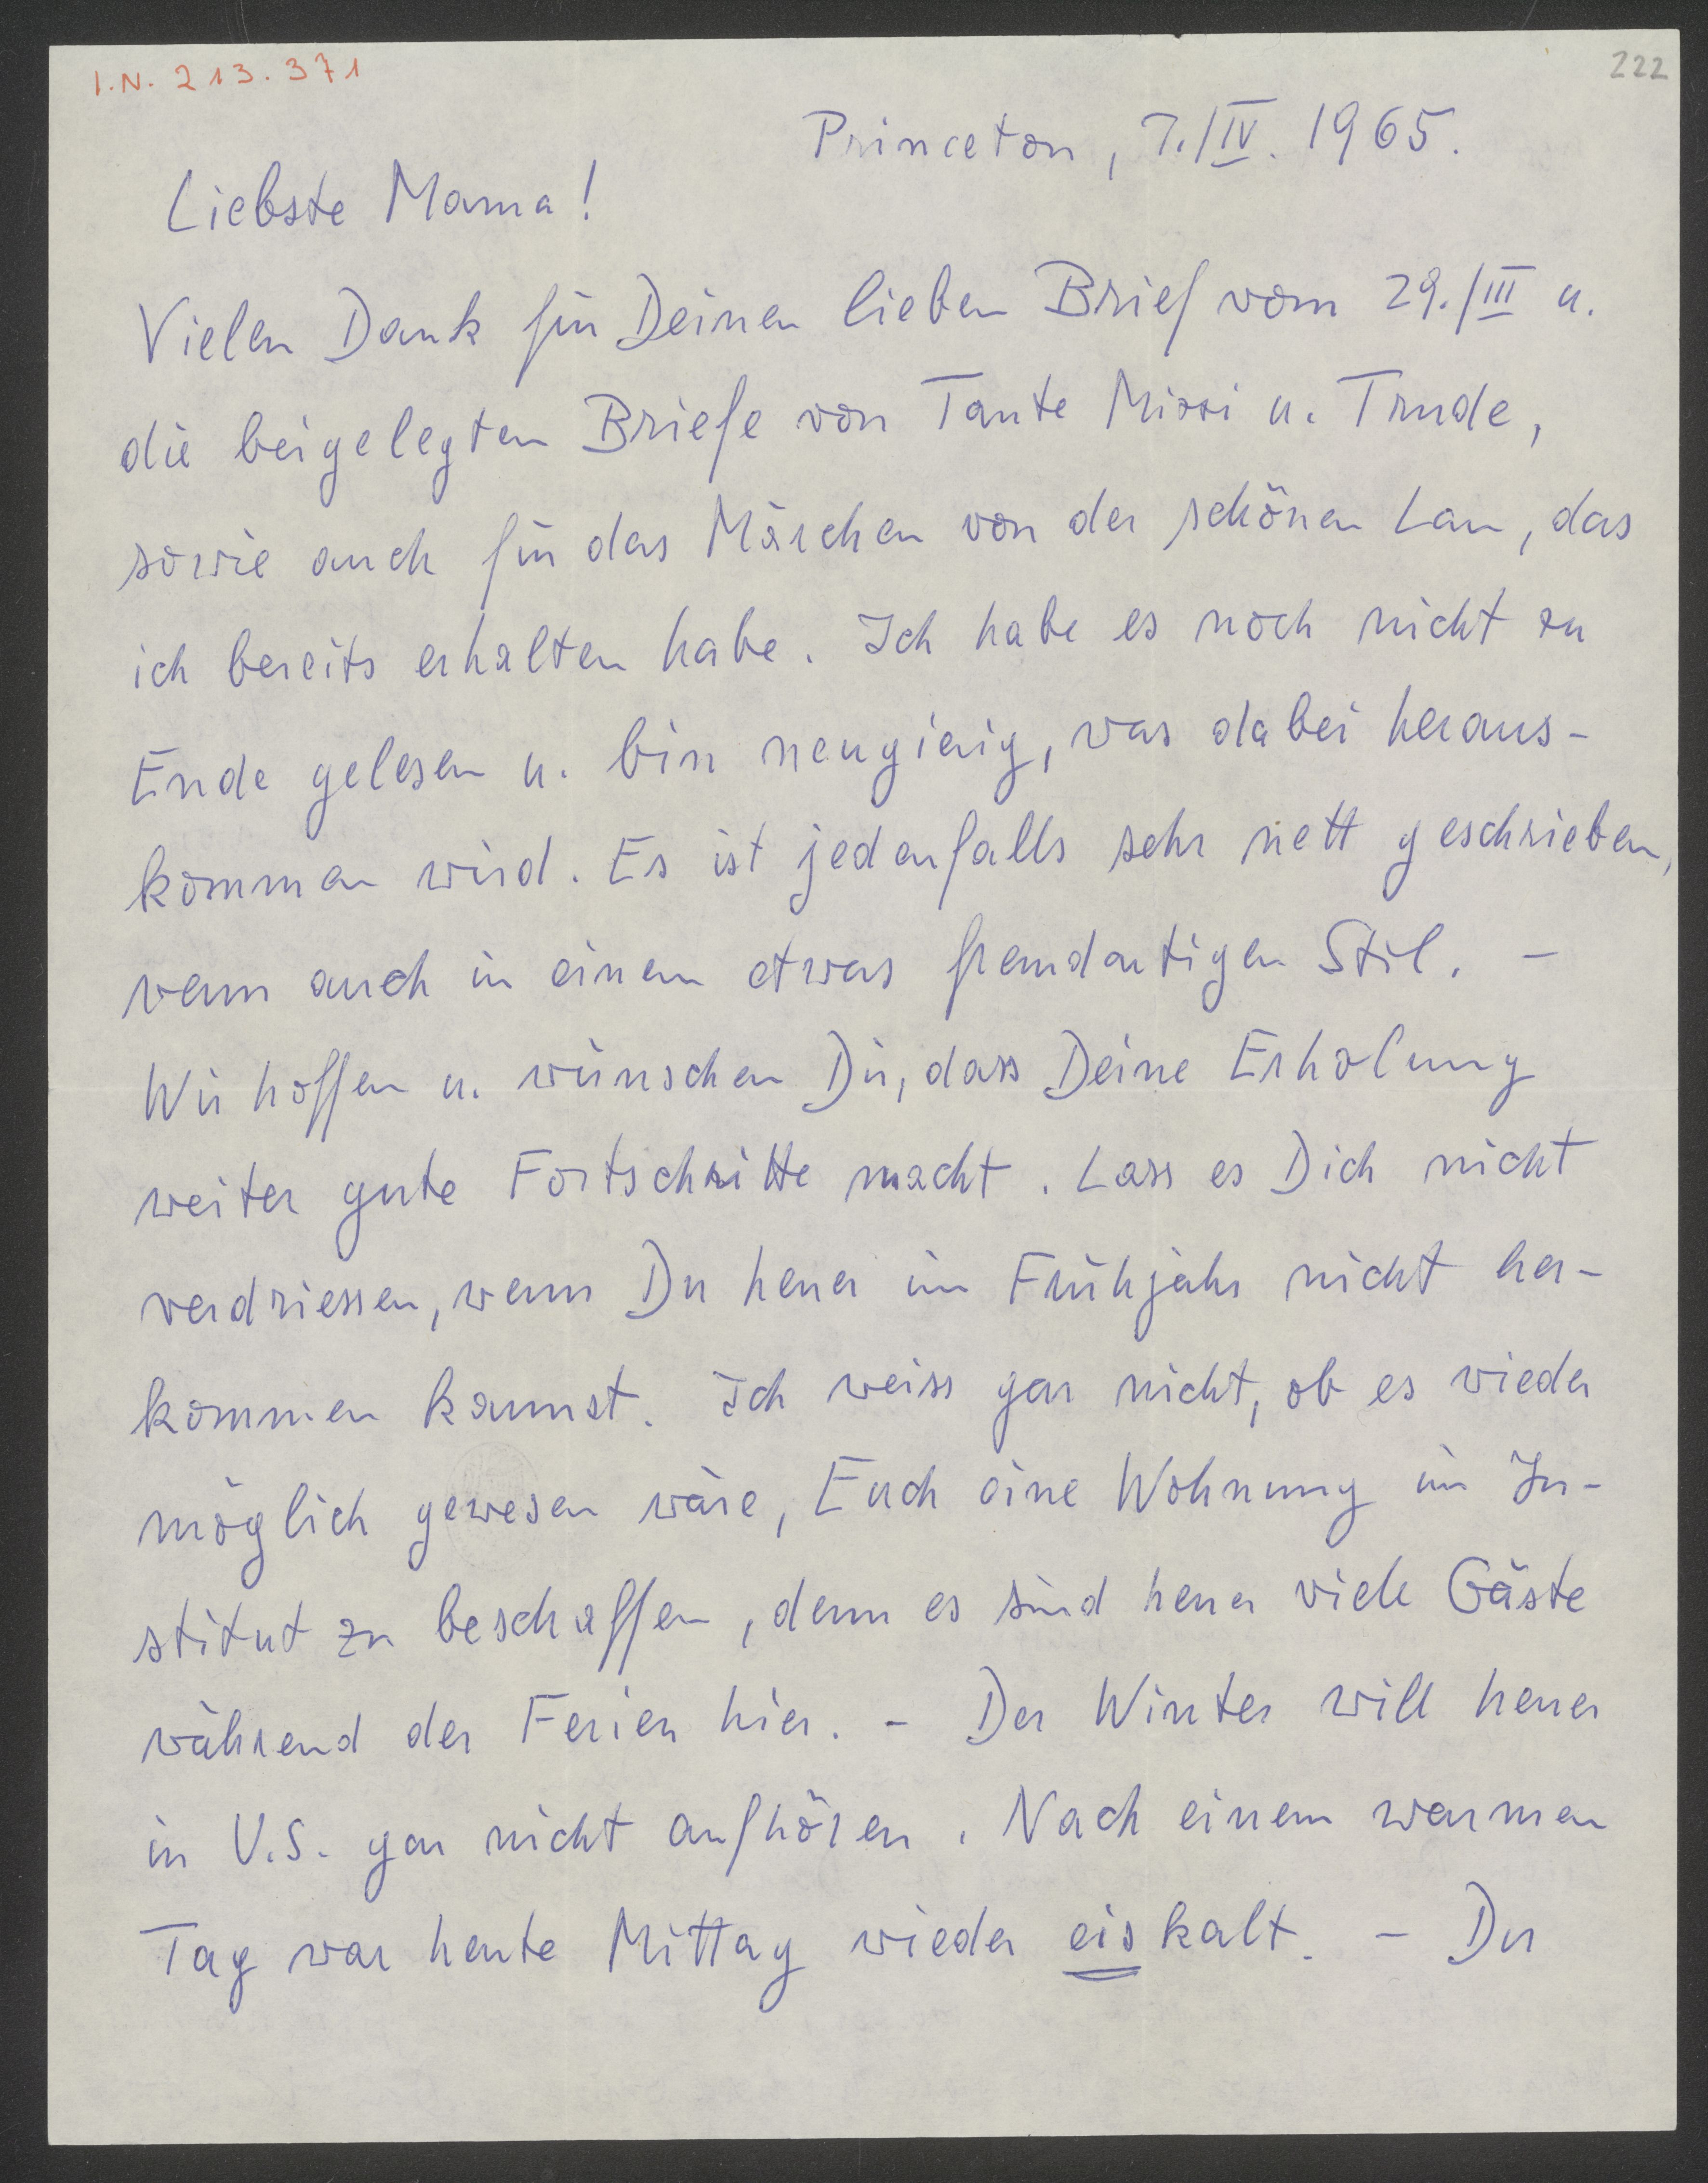 I.N. 213.371
222
Princeton, 7./IV. 1965.
Liebste Mama!
Vielen Dank für Deinen lieben Brief vom 29./III u.
die beigelegten Briefe von Tante Mizzi u. Trude,
sowie auch für das Märchen von der schönen Lau, das
ich bereits erhalten habe. Ich habe es noch nicht zu
Ende gelesen u. bin neugierig, was dabei heraus-
kommen wird. Es ist jedenfalls sehr nett geschrieben,
wenn auch in einem etwas fremdartigen Stil. –
Wir hoffen u. wünschen Dir, dass Deine Erholung
weiter gute Fortschritte macht. Lass es Dich nicht
verdriessen, wenn Du heuer im Frühjahr nicht her-
kommen kannst. Ich weiss gar nicht, ob es wieder
möglich gewesen wäre, Euch eine Wohnung im In-
stitut zu beschaffen, denn es sind heuer viele Gäste
während der Ferien hier. – Der Winter will heuer
in U.S. gar nicht aufhören. Nach einem warmen
Tag war heute Mittag wieder eiskalt. – Du